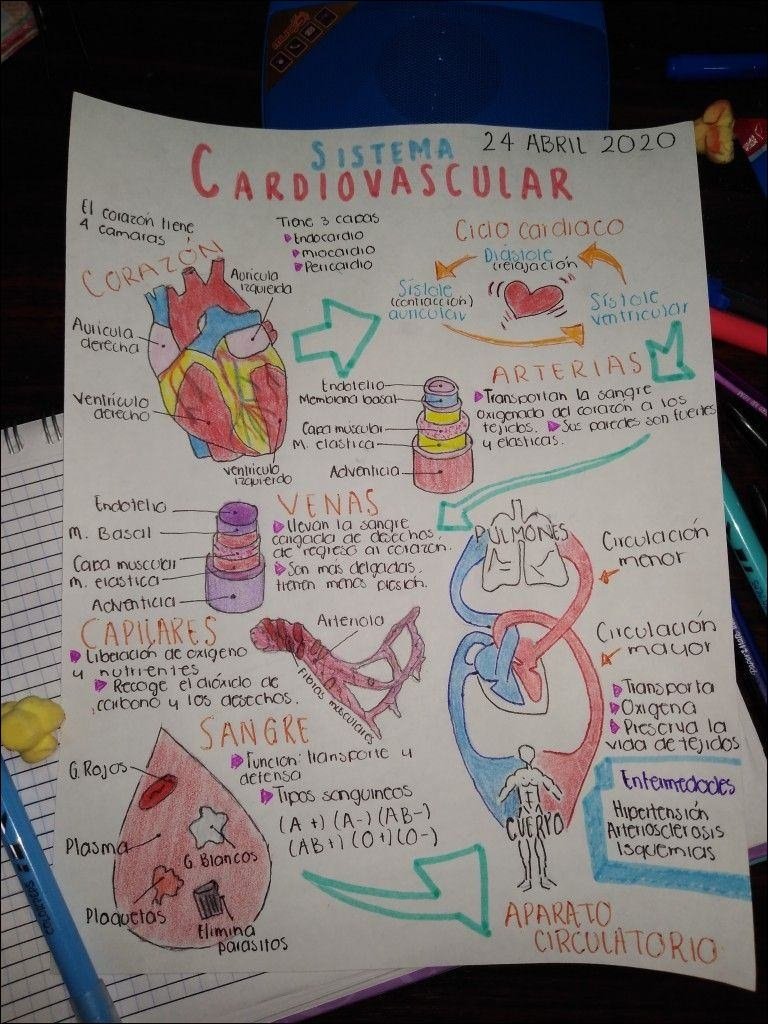 24 ABRIL 2020
SISTEMA
CARDIOVASCULAR
El corazón tiene
4 camaras
CORAZÓN
Tiene 3 capas
Endocardio
Miocardio
Pericardio
Aurícula
izquierda
Aurícula
derecha
Ventrículo
derecho
ventrículo
izquierdo
Ciclo cardiaco
Diástole
(relajación)
Sístole
(contracción)
auricular
Sístole
ventricular
ARTERIAS
Endotelio
Membrana basal
Capa muscular
M. elastica
Adventicia
Transportan la sangre
oxigenada del corazón a los
tejidos. Sus paredes son fuertes
y elasticas.
VENAS
Endotelio
M. Basal
Capa muscular
M. elastica
Adventicia
llevan la sangre
cargada de desechos
de regreso al corazón.
Son mas delgadas.
tienen menos presión.
CAPILARES
Liberación de oxigeno
y nutrientes
Recoge el dióxido de
carbono y los desechos.
Arteriola
Fibras musculares
PULMONES
Circulación
menor
Circulación
mayor
Transporta
Oxigena
Preserva la
vida de tejidos
CUERPO
SANGRE
Funcion: transporte y
defensa
Tipos sanguineos
(A+) (A-) (AB-)
(AB+) (O+) (O-)
G. Rojos
Plasma
G. Blancos
Plaquetas
Elimina
parasitos
Enfermedades
Hipertensión
Arteriosclerosis
Isquemias
APARATO
CIRCULATORIO